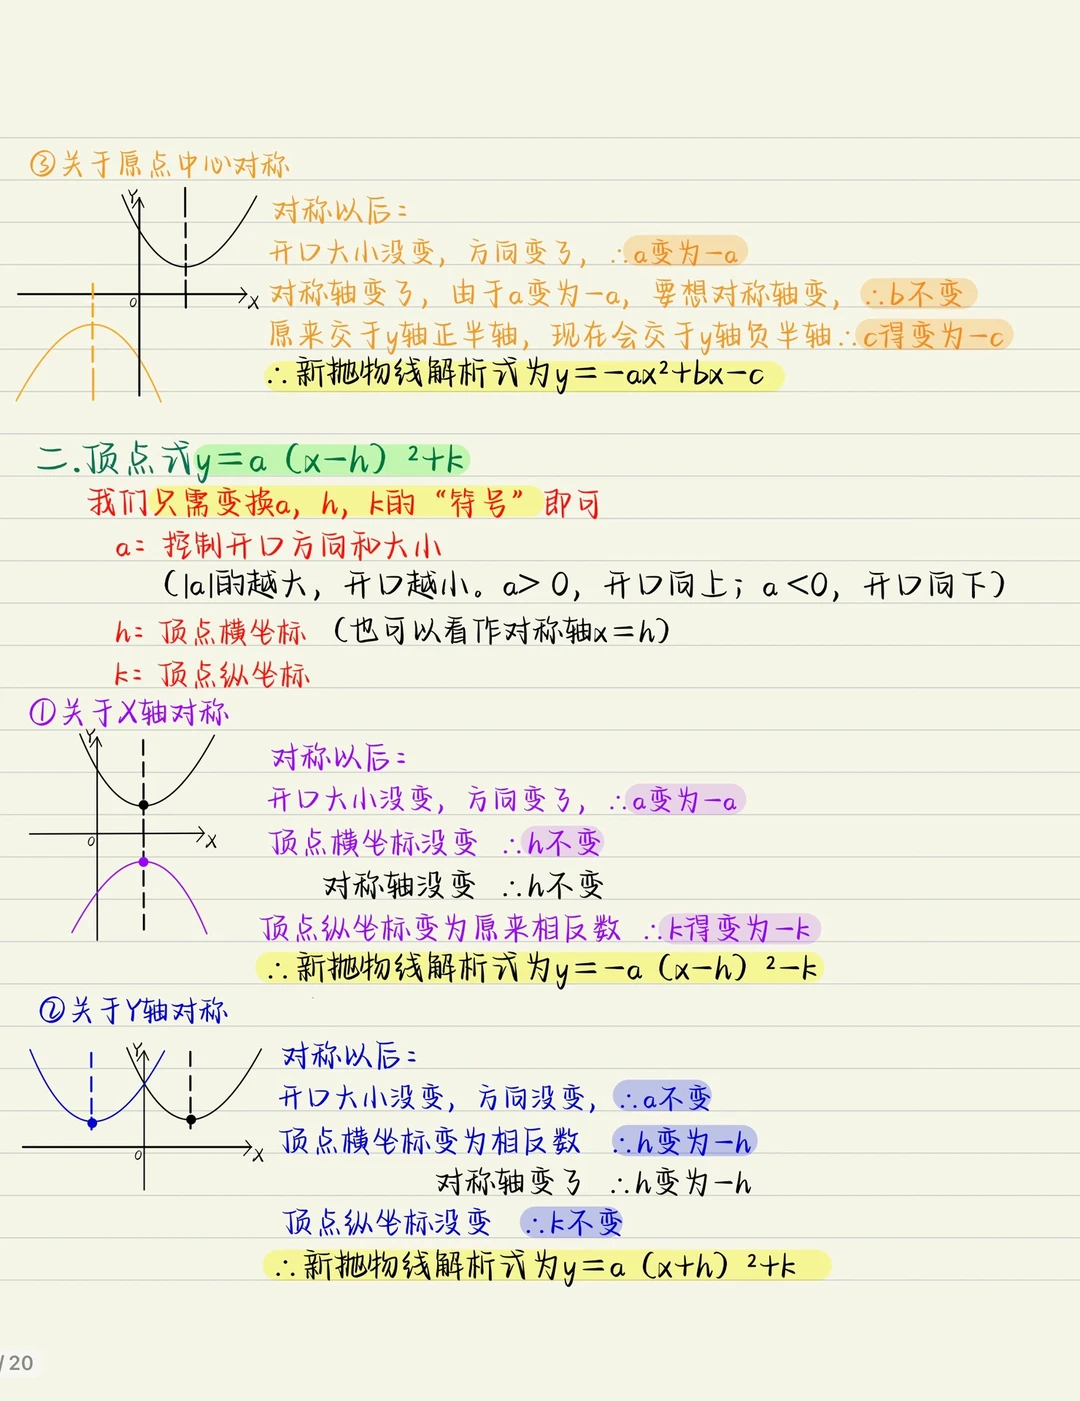 ③关于原点中心对称
Y
O
X
对称以后：
开口大小没变，方向变了，∴a变为-a
对称轴变了，由于a变为-a，要想对称轴变，∴b不变
原来交于y轴正半轴，现在会交于y轴负半轴∴c得变为-c
∴新抛物线解析式为y=-ax²+bx-c
二.顶点式y=a（x-h）²+k
我们只需变换a，h，k的“符号”即可
a：控制开口方向和大小
（|a|的越大，开口越小。a>0，开口向上；a<0，开口向下）
h：顶点横坐标（也可以看作对称轴x=h）
k：顶点纵坐标
①关于X轴对称
Y
O
X
对称以后：
开口大小没变，方向变了，∴a变为-a
顶点横坐标没变 ∴h不变
对称轴没变 ∴h不变
顶点纵坐标变为原来相反数 ∴k得变为-k
∴新抛物线解析式为y=-a（x-h）²-k
②关于Y轴对称
Y
O
X
对称以后：
开口大小没变，方向没变，∴a不变
顶点横坐标变为相反数 ∴h变为-h
对称轴变了 ∴h变为-h
顶点纵坐标没变 ∴k不变
∴新抛物线解析式为y=a（x+h）²+k
/20